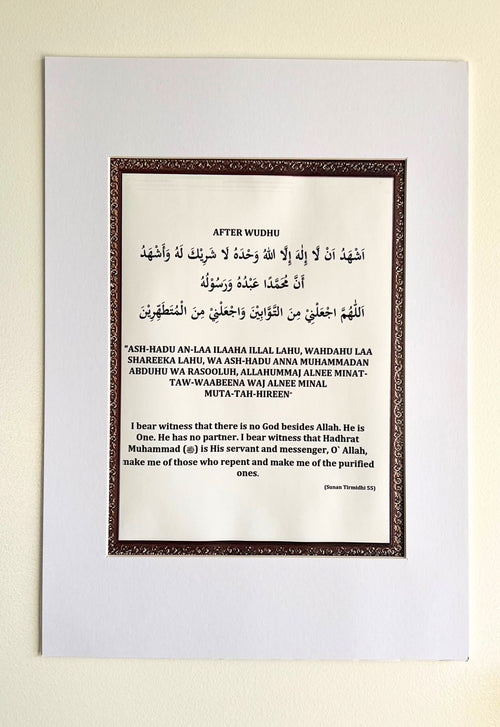 AFTER WUDHU
اَشْهَدُ اَنْ لَّا إِلٰهَ إِلَّا اللهُ وَحْدَهُ لَا شَرِيْكَ لَهُ وَأَشْهَدُ
أَنَّ مُحَمَّدًا عَبْدُهُ وَرَسُوْلُهُ
اَللّٰهُمَّ اجْعَلْنِيْ مِنَ التَّوَّابِيْنَ وَاجْعَلْنِيْ مِنَ الْمُتَطَهِّرِيْنَ
"ASH-HADU AN-LAA ILAAHA ILLAL LAHU, WAHDAHU LAA
SHAREEKA LAHU, WA ASH-HADU ANNA MUHAMMADAN
ABDUHU WA RASOOLUH, ALLAHUMMAJ ALNEE MINAT-
TAW-WAABEENA WAJ ALNEE MINAL
MUTA-TAH-HIREEN"
I bear witness that there is no God besides Allah. He is
One. He has no partner. I bear witness that Hadhrat
Muhammad (ﷺ) is His servant and messenger, O` Allah,
make me of those who repent and make me of the purified
ones.
(Sunan Tirmidhi 55)